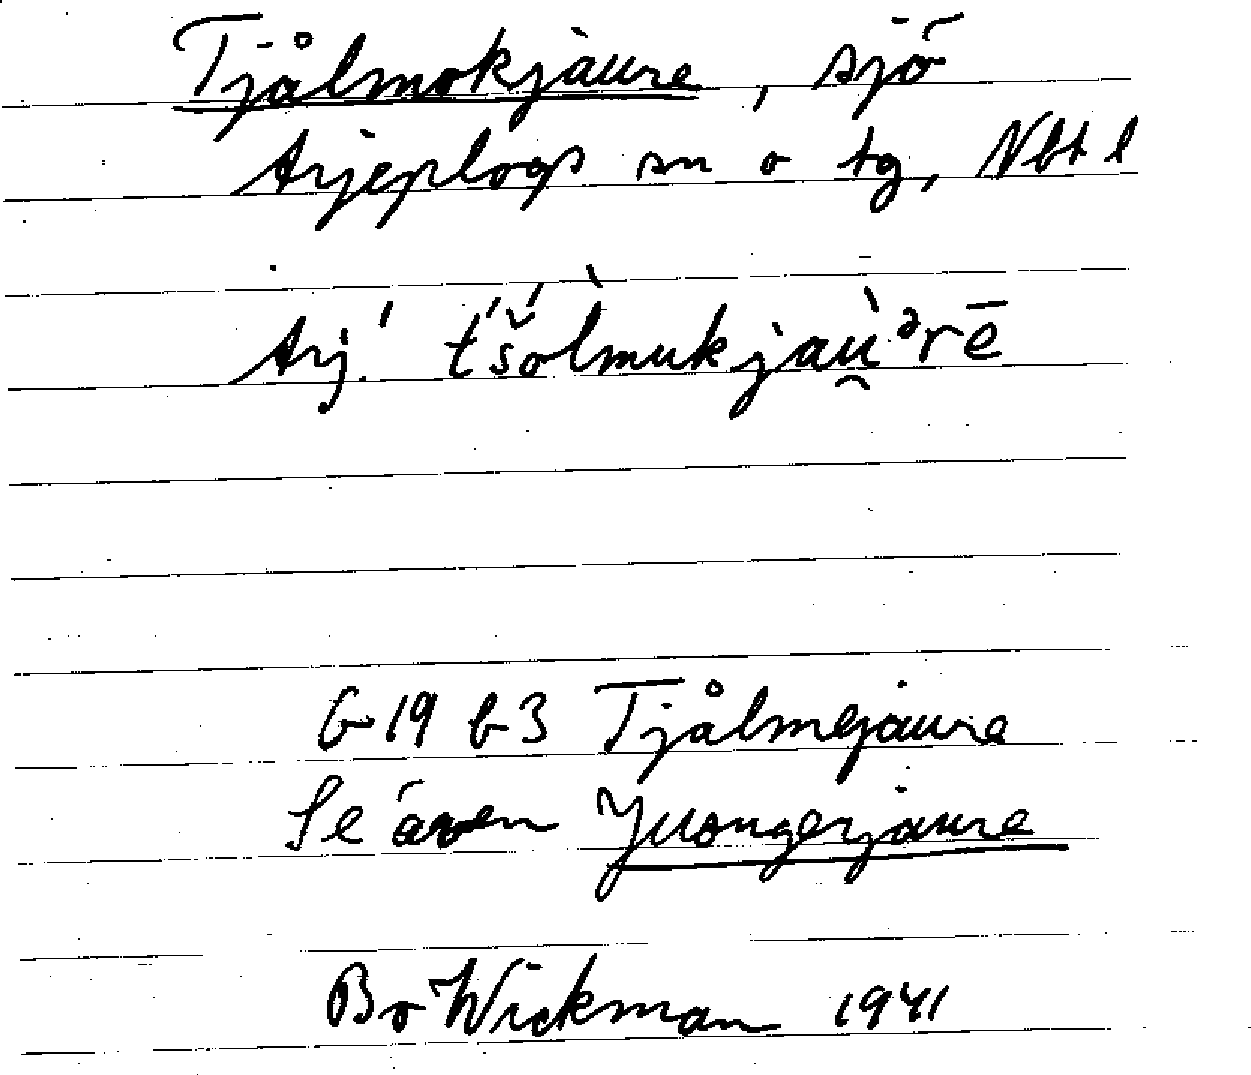 Tjålmokjaure, sjö
Arjeplogs sn o tg, Nbt l
Arj. t́šólmukjau̯ᵊrē
G 19 b 3 Tjålmejaure
Se även Juongerjaure
Bo Wickman 1941